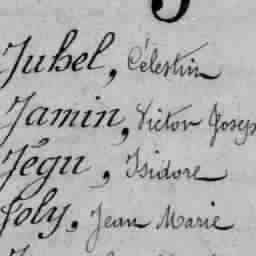 Juhel, Célestin
Jamin, Victor Joseph
Jégu, Isidore
Joly, Jean Marie